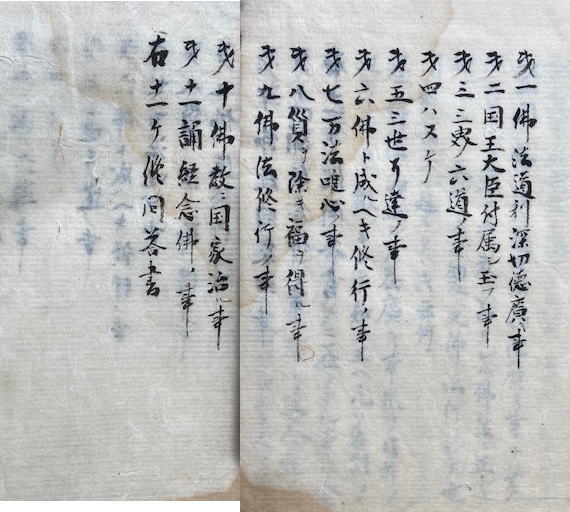 㐧一佛法道利深切徳廣キ事
㐧二国王大臣付属シ玉フ事
㐧三三界六道ノ事
㐧四ハヌケ
㐧五三世了達ノ事
㐧六佛ト成ルヘキ修行ノ事
㐧七万法唯心ノ事
㐧八貧ヲ除キ福ヲ得ル事
㐧九佛法修行ノ事
㐧十佛教ニ国家治ル事
㐧十一誦経念佛ノ事
右十一ケ條問答書